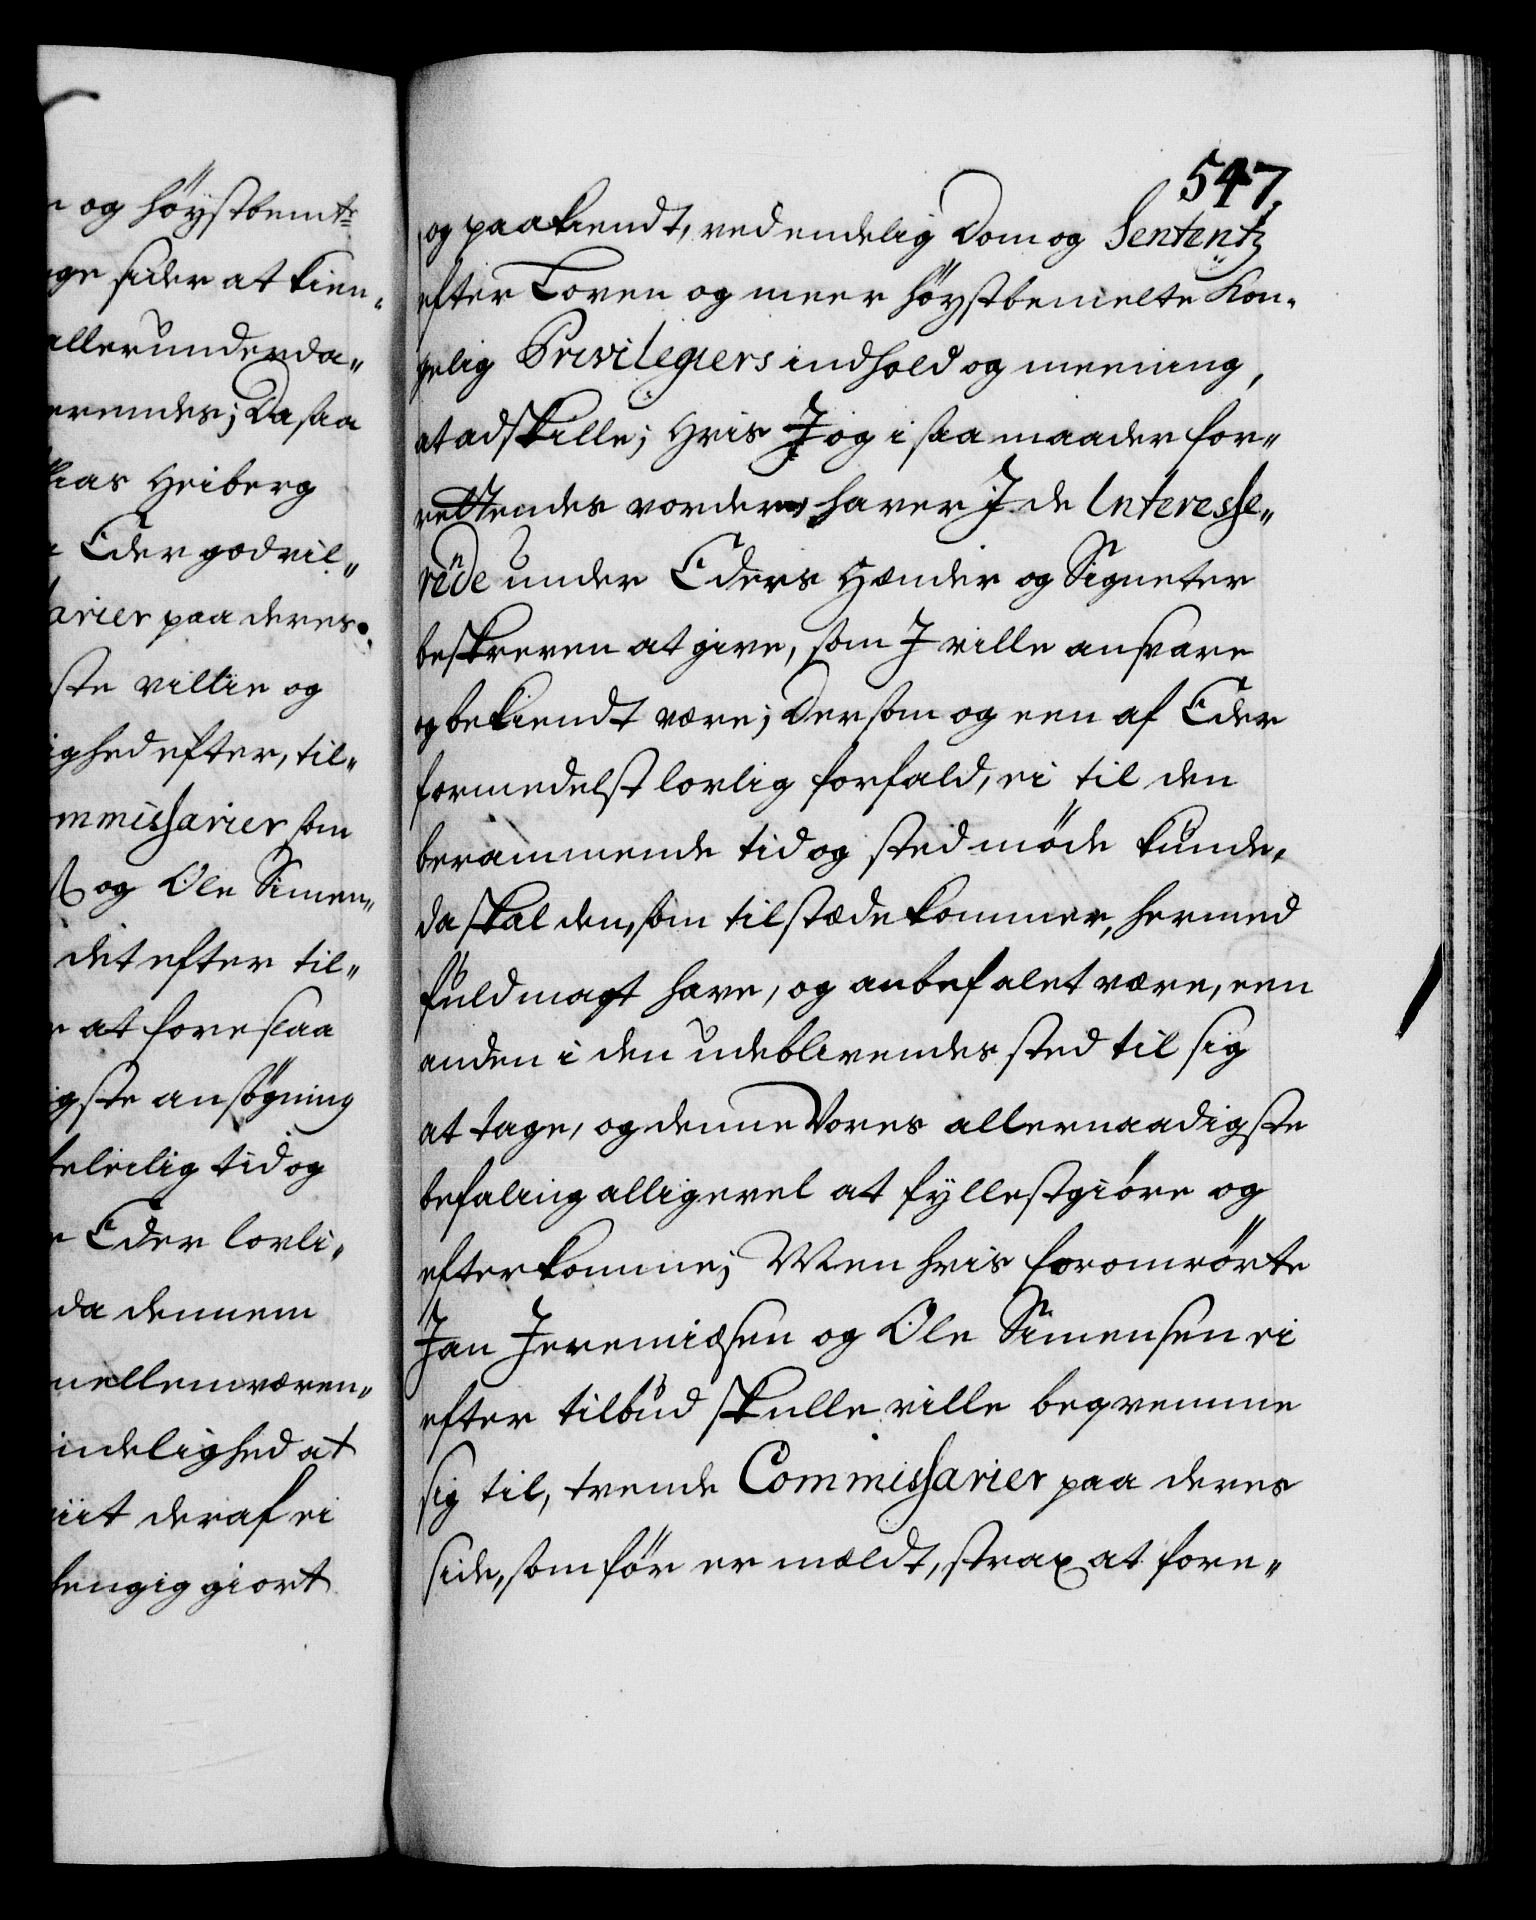 n og höystbemte
ge sider at kien„
allerunderda„
erendes; Da saa
kias Heiberg
e Eder godvil„
arier paa deres
ste villie og
ighed efter, til„
mmissarier som
og Ole Simen„
det efter til„
r at foreslaa
igste ansögning
beleilig tid og
e Eder lovli„
da dennem
mellemværen„
indelighed at
iit deraf ei
hengig giort
547.
og paakiendt, ved endelig Dom og Sententz
efter Loven og meer höystbemelte Kon„
gelig Privilegiers indhold og meening,
at adskille; Hvis I og i saa maader for„
rettendes vorder, haver I de Interesse„
rende under Eders Hænder og Signeter
beskreven at give, som I ville ansvare
og bekiendt være; Dersom og een af Eder
formedelst lovlig forfald, ei til den
berammende tid og sted möde kunde,
da skal den, som tilstæde kommer, hermed
fuldmagt have, og anbefalet være, een
anden i den udeblivendes sted til sig
at tage, og denne Vores allernaadigste
befaling alligevel at fyllestgiöre og
efterkomme; Men hvis foromrörte
Jan Jeremiæsen og Ole Simensen ei
efter tilbud skulle ville beqvemme
sig til, trende Commissarier paa deres
side, som för er meldt, strax at fore„